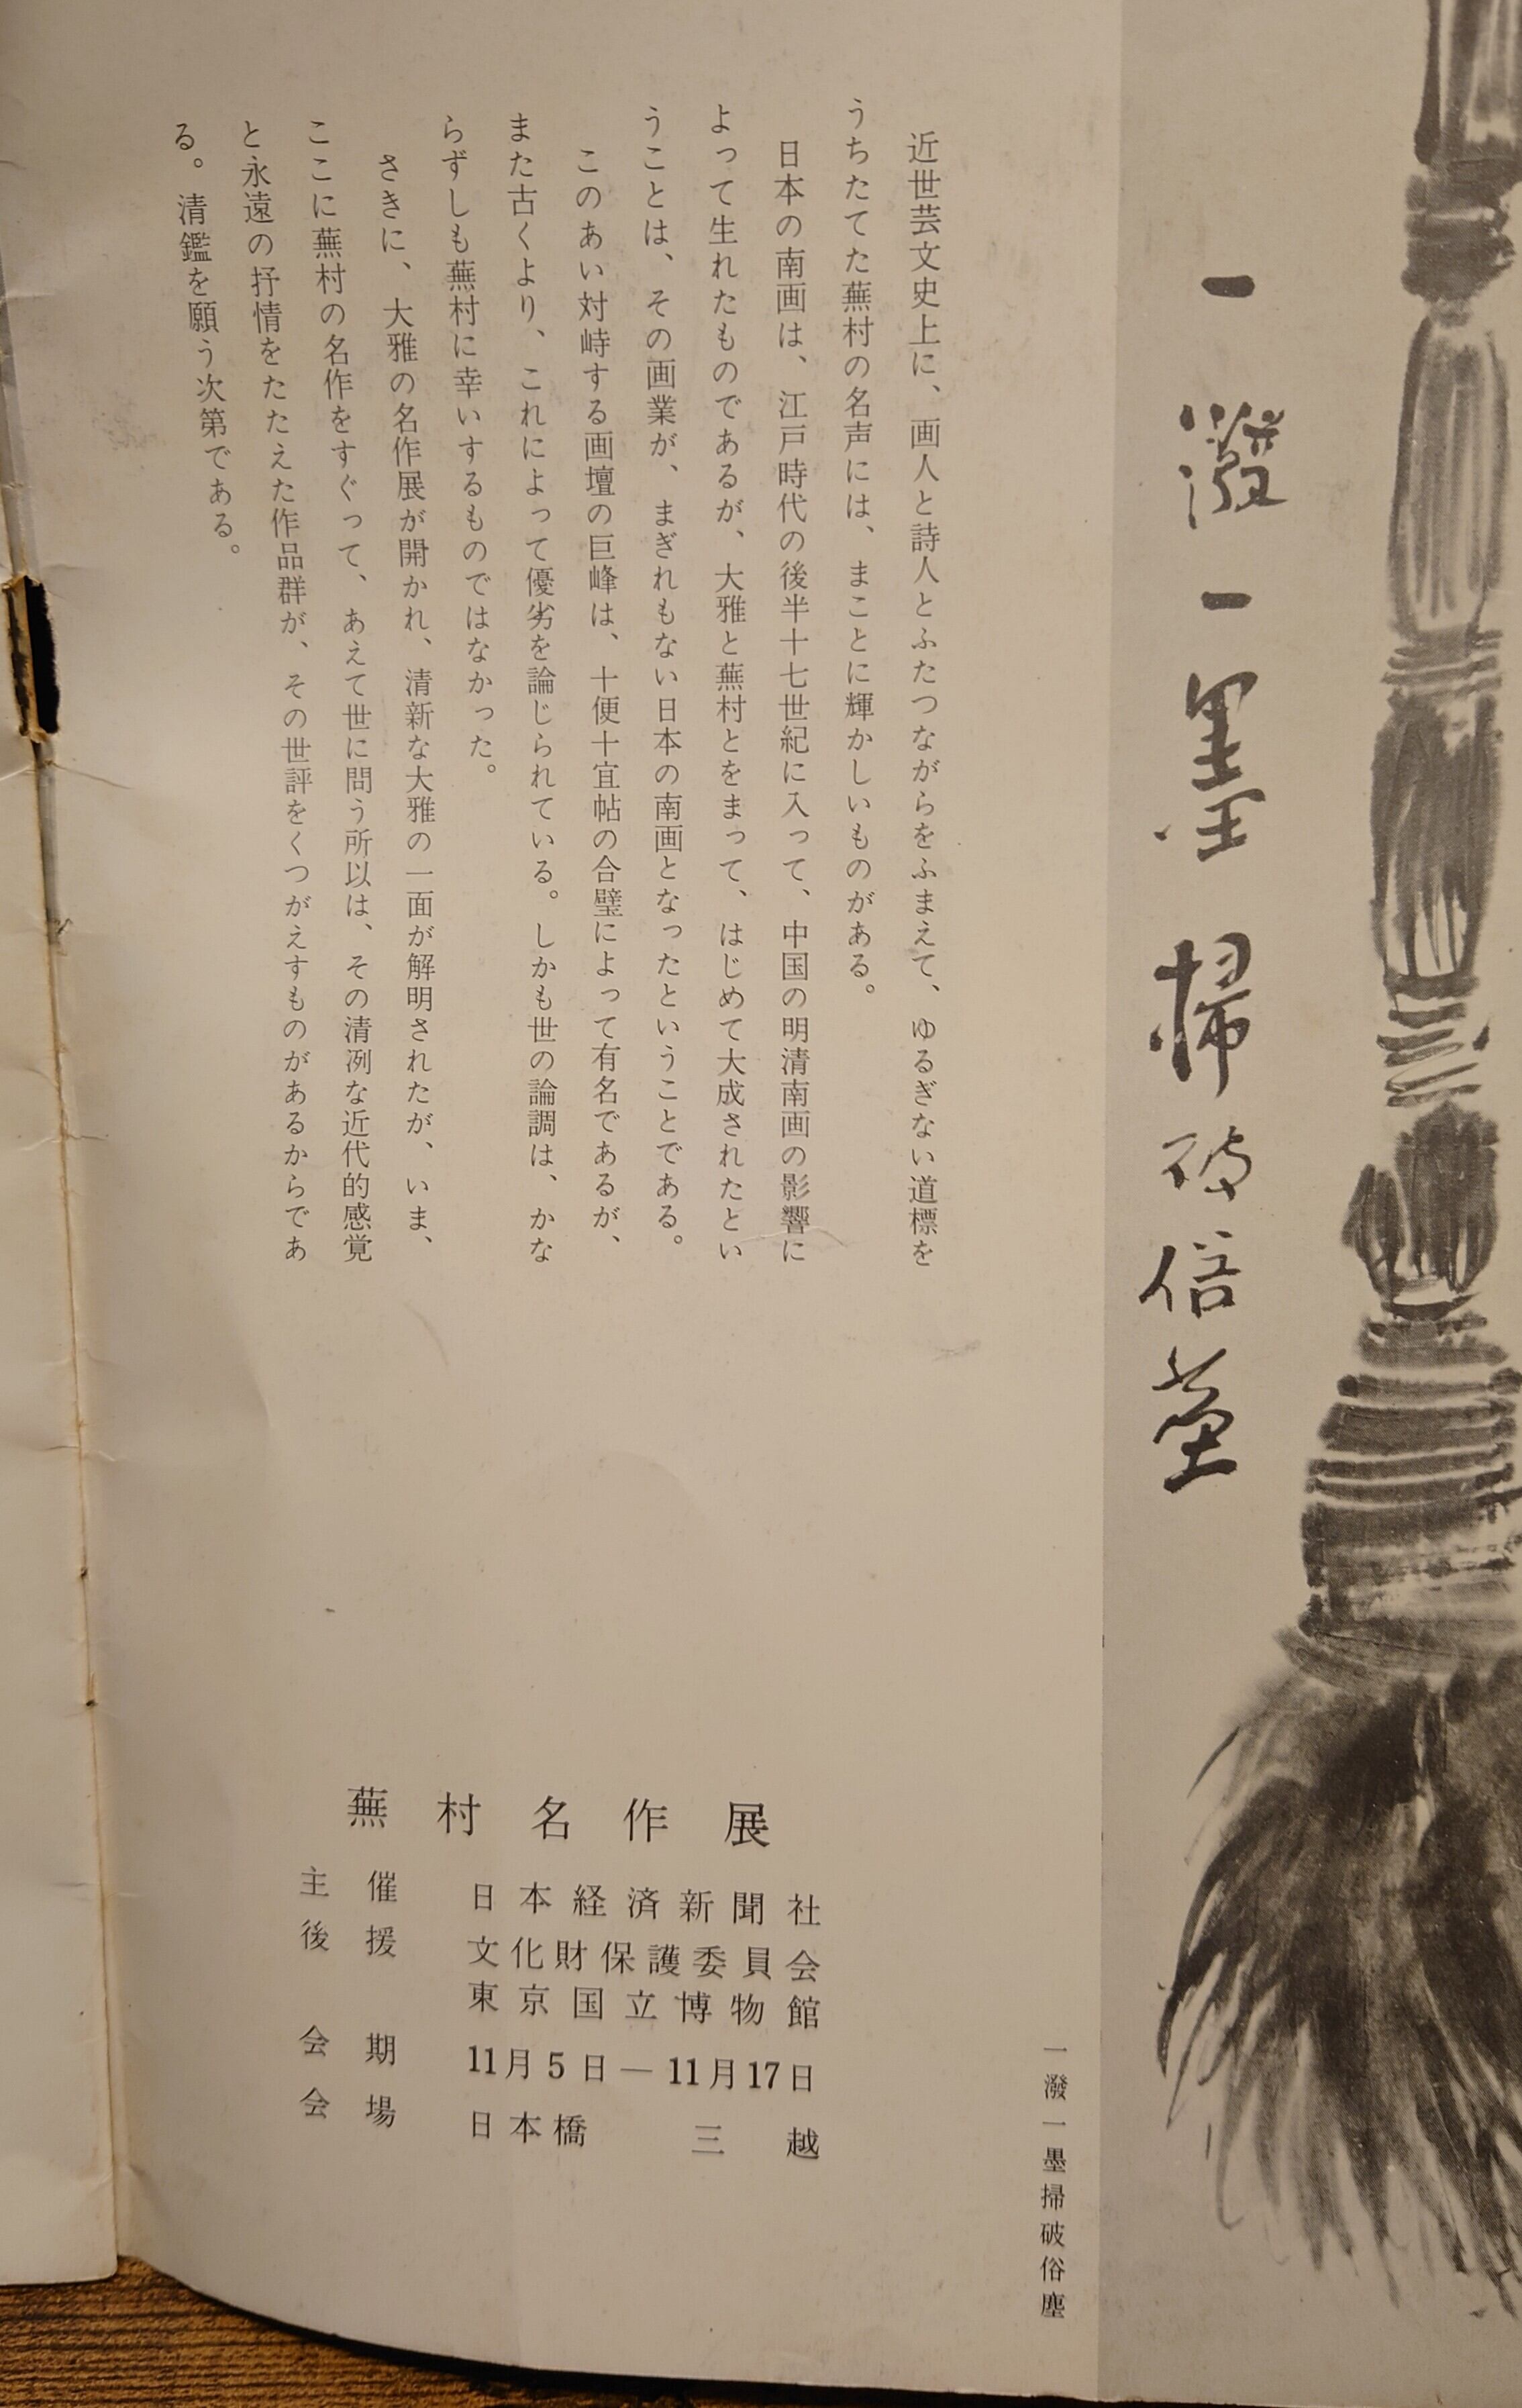 一潑一墨掃破俗塵
一潑一墨掃破俗塵
近世芸文史上に、画人と詩人とふたつながらをふまえて、ゆるぎない道標を
うちたてた蕪村の名声には、まことに輝かしいものがある。
日本の南画は、江戸時代の後半十七世紀に入って、中国の明清南画の影響に
よって生れたものであるが、大雅と蕪村とをまって、はじめて大成されたとい
うことは、その画業が、まぎれもない日本の南画となったということである。
このあい対峙する画壇の巨峰は、十便十宜帖の合璧によって有名であるが、
また古くより、これによって優劣を論じられている。しかも世の論調は、かな
らずしも蕪村に幸いするものではなかった。
さきに、大雅の名作展が開かれ、清新な大雅の一面が解明されたが、いま、
ここに蕪村の名作をすぐって、あえて世に問う所以は、その清冽な近代的感覚
と永遠の抒情をたたえた作品群が、その世評をくつがえすものがあるからであ
る。清鑑を願う次第である。
蕪村名作展
主催 日本経済新聞社
後援 文化財保護委員会
東京国立博物館
会期 11月5日―11月17日
会場 日本橋 三越